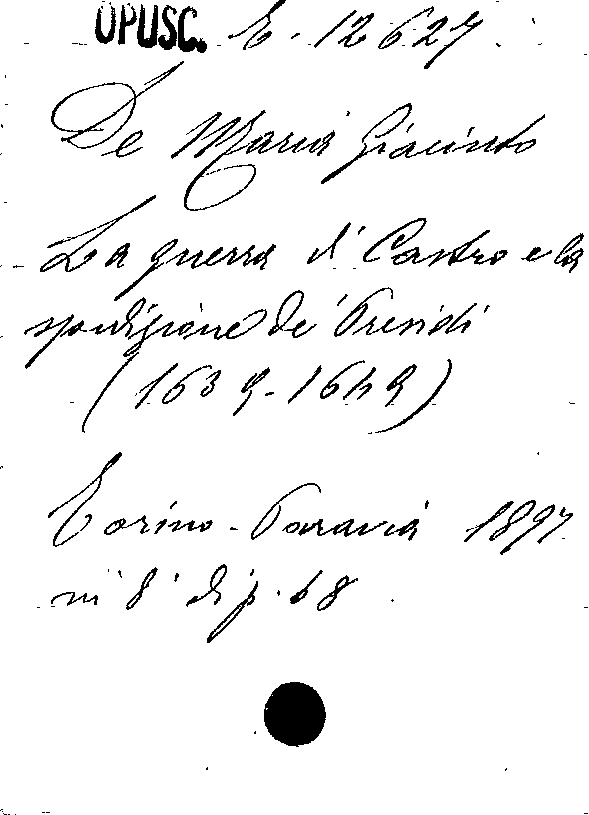 OPUSC. E. 12627
De Maria Giacinto
La guerra di Castro e la
spedizione de' Presidi
(1639-1649)
Torino - Paravia 1897
in 8° di p. 68